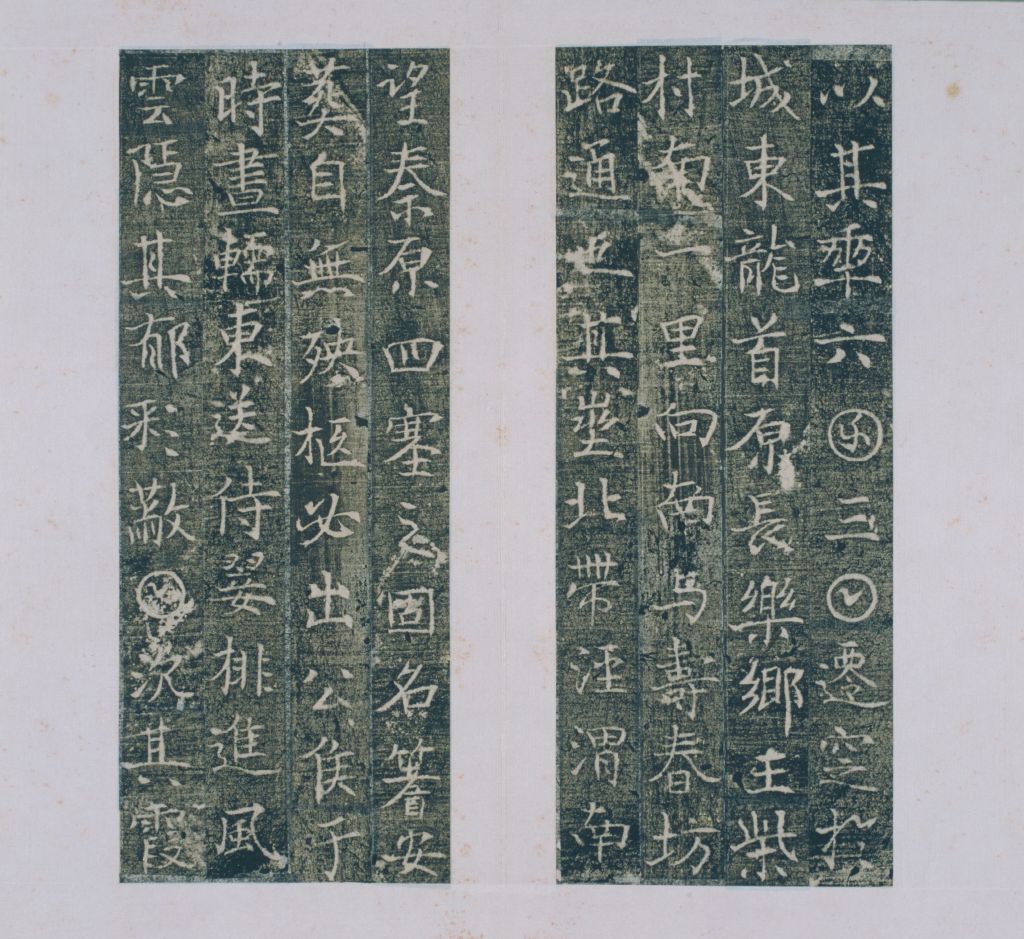 以其年六𠥱三𡆠遷窆於
城東龍首原長樂鄉王柴
村南一里向南与壽春坊
路通也其塋北帶涇渭南
望秦原四塞之固名箸安
葬自無殃柩必出公侯于
時晝轜東送侍翣排進風
雲隱其郁彩蔽𡆠沉其霞